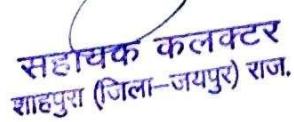 सहायक कलक्टर
शाहपुरा (जिला–जयपुर) राज.